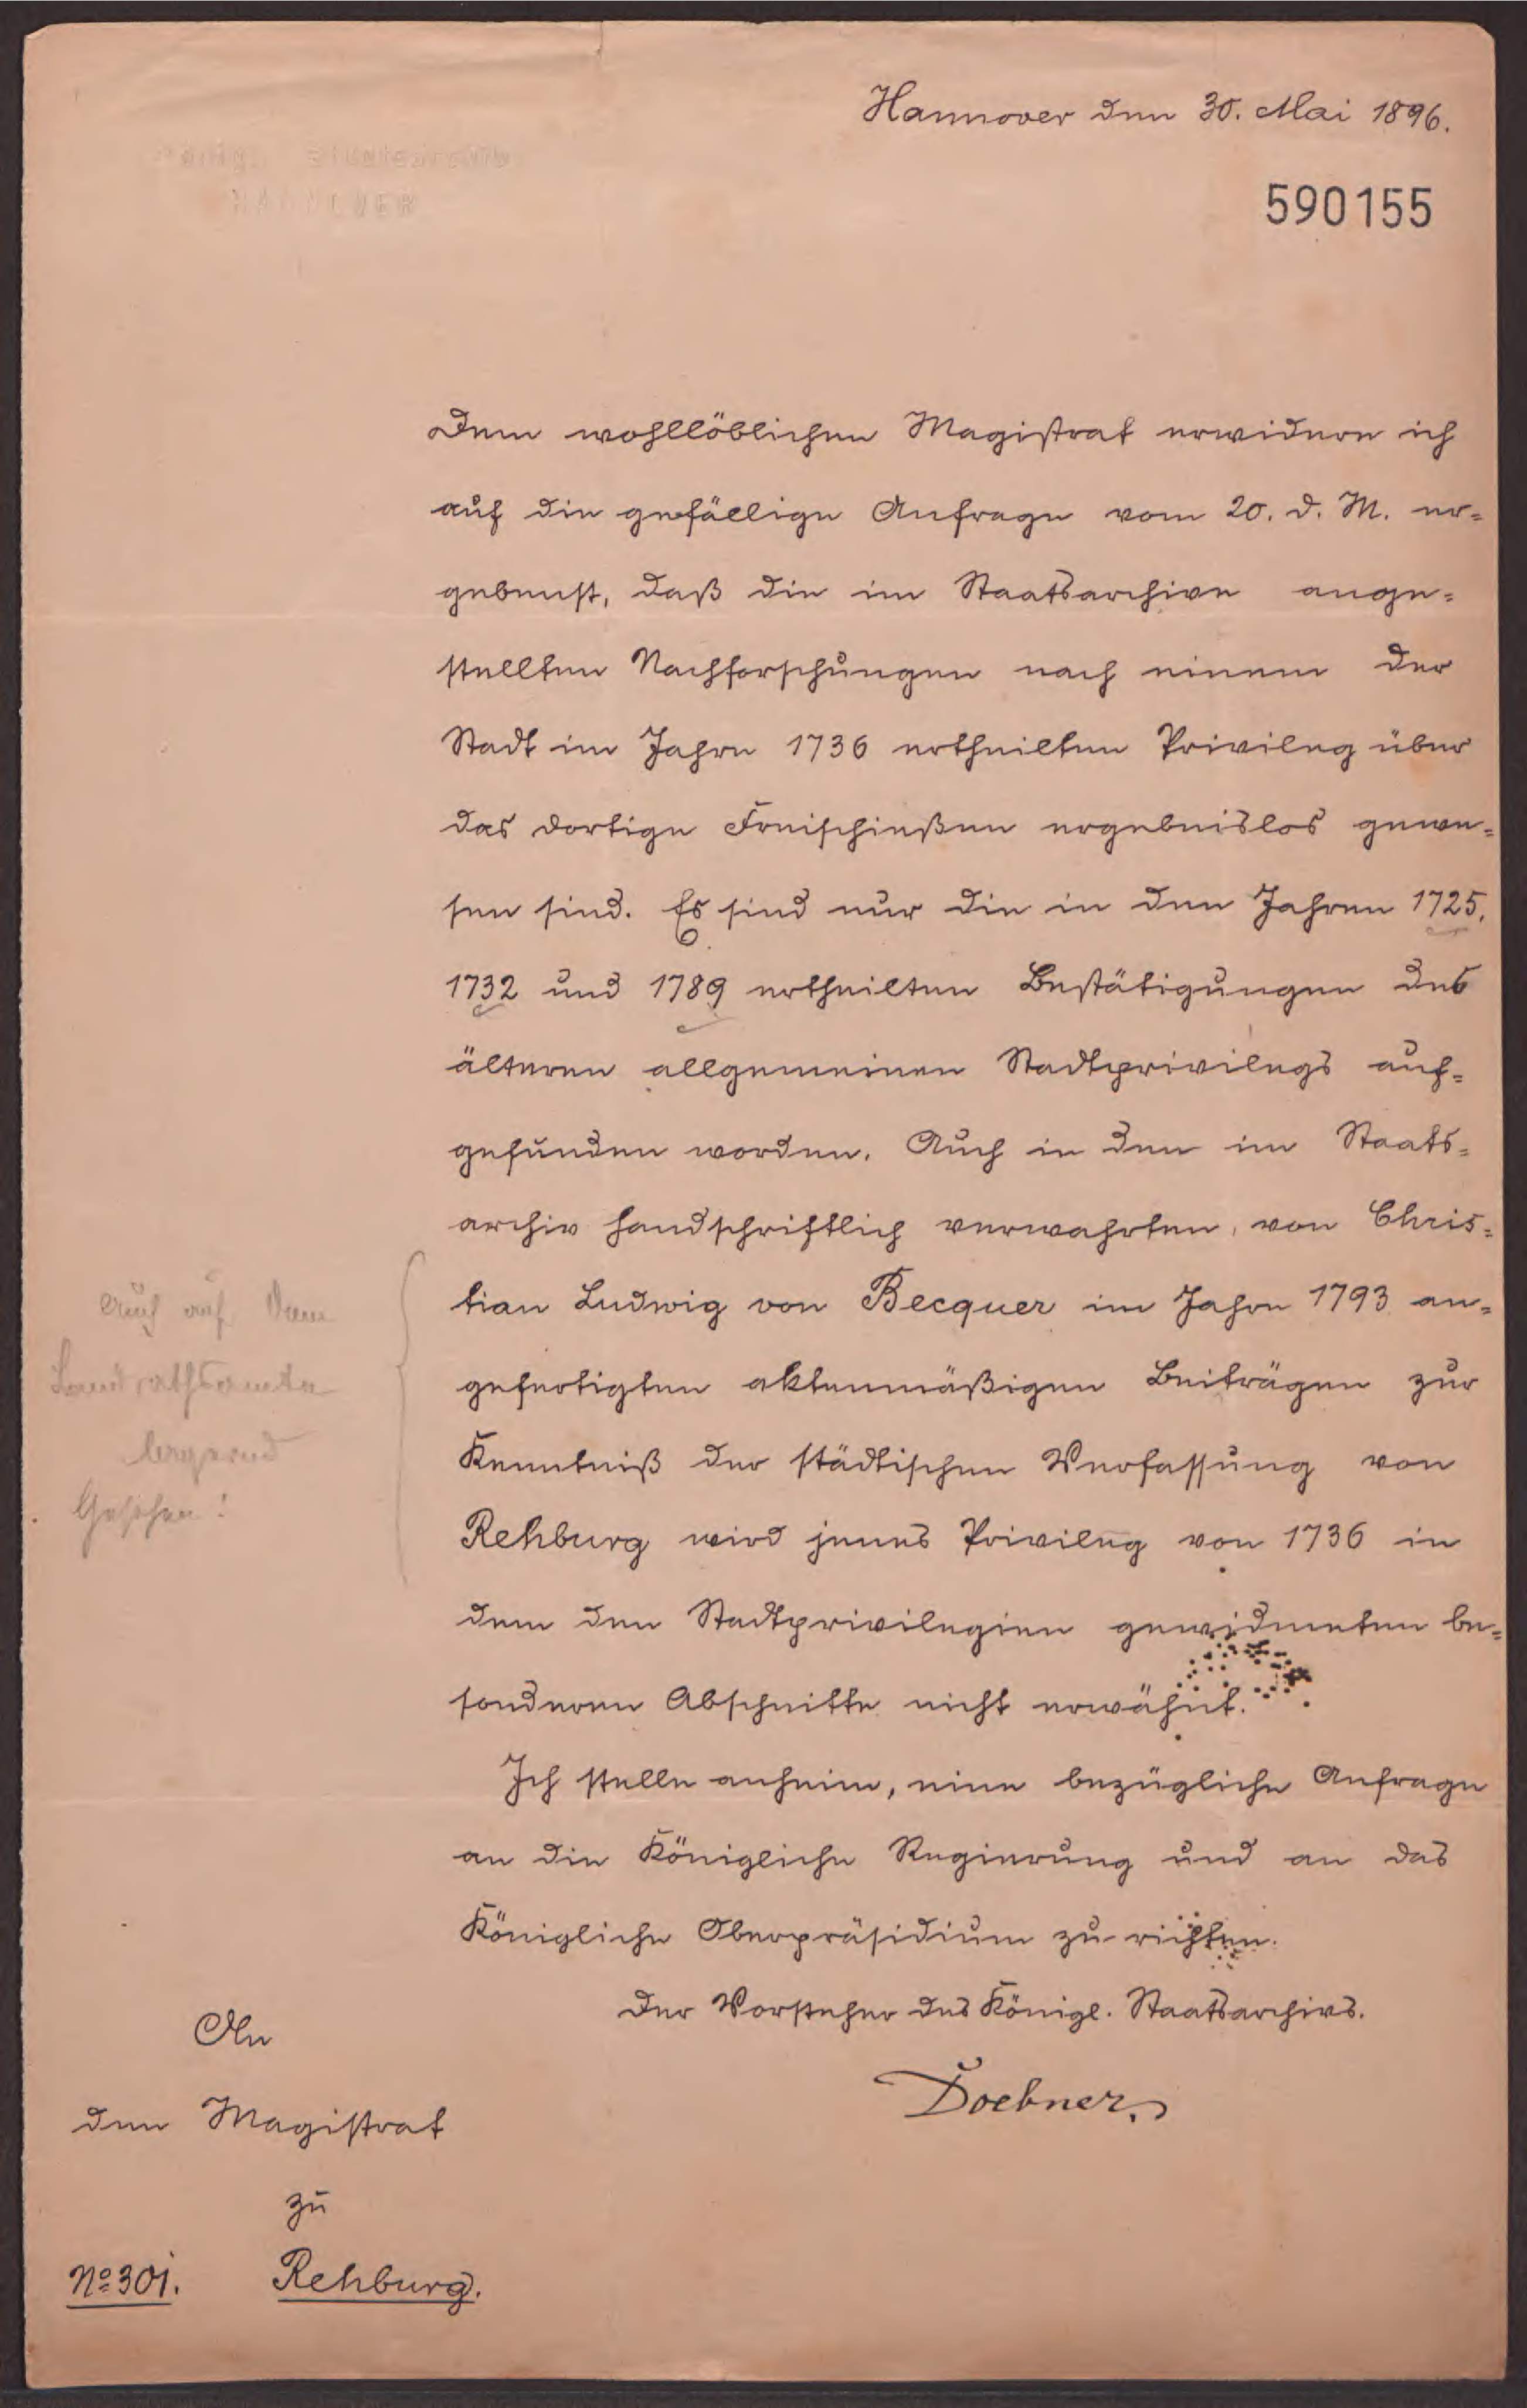 Hannover den 30. Mai 1896.
Königl. Staatsarchiv
HANNOVER
590155
Dem wohllöblichen Magistrat erwidere ich
auf die gefällige Anfrage vom 20. d. M. er-
gebenst, daß die im Staatsarchive ange-
stellten Nachforschungen nach einem der
Stadt im Jahre 1736 ertheilten Privileg über
das dortige Freischießen ergebnislos gewe-
sen sind. Es sind nur die in den Jahren 1725,
1732 und 1789 ertheilten Bestätigungen des
älteren allgemeinen Stadtprivilegs auf-
gefunden worden. Auch in den im Staats-
archiv handschriftlich verwahrten, von Chris-
tian Ludwig von Becquer im Jahre 1793 an-
gefertigten aktenmäßigen Beiträgen zur
Kenntniß der städtischen Verfassung von
Rehburg wird jenes Privileg von 1736 in
dem den Stadtprivilegien gewidmeten be-
sonderen Abschnitte nicht erwähnt.
Auch auf dem
Landrathsamte
Gesehen!
Ich stelle anheim, eine bezügliche Anfrage
an die Königliche Regierung und an das
Königliche Oberpräsidium zu richten.
Der Vorsteher des Königl. Staatsarchivs.
Doebner.
An
den Magistrat
zu
Rehburg.
No 301.